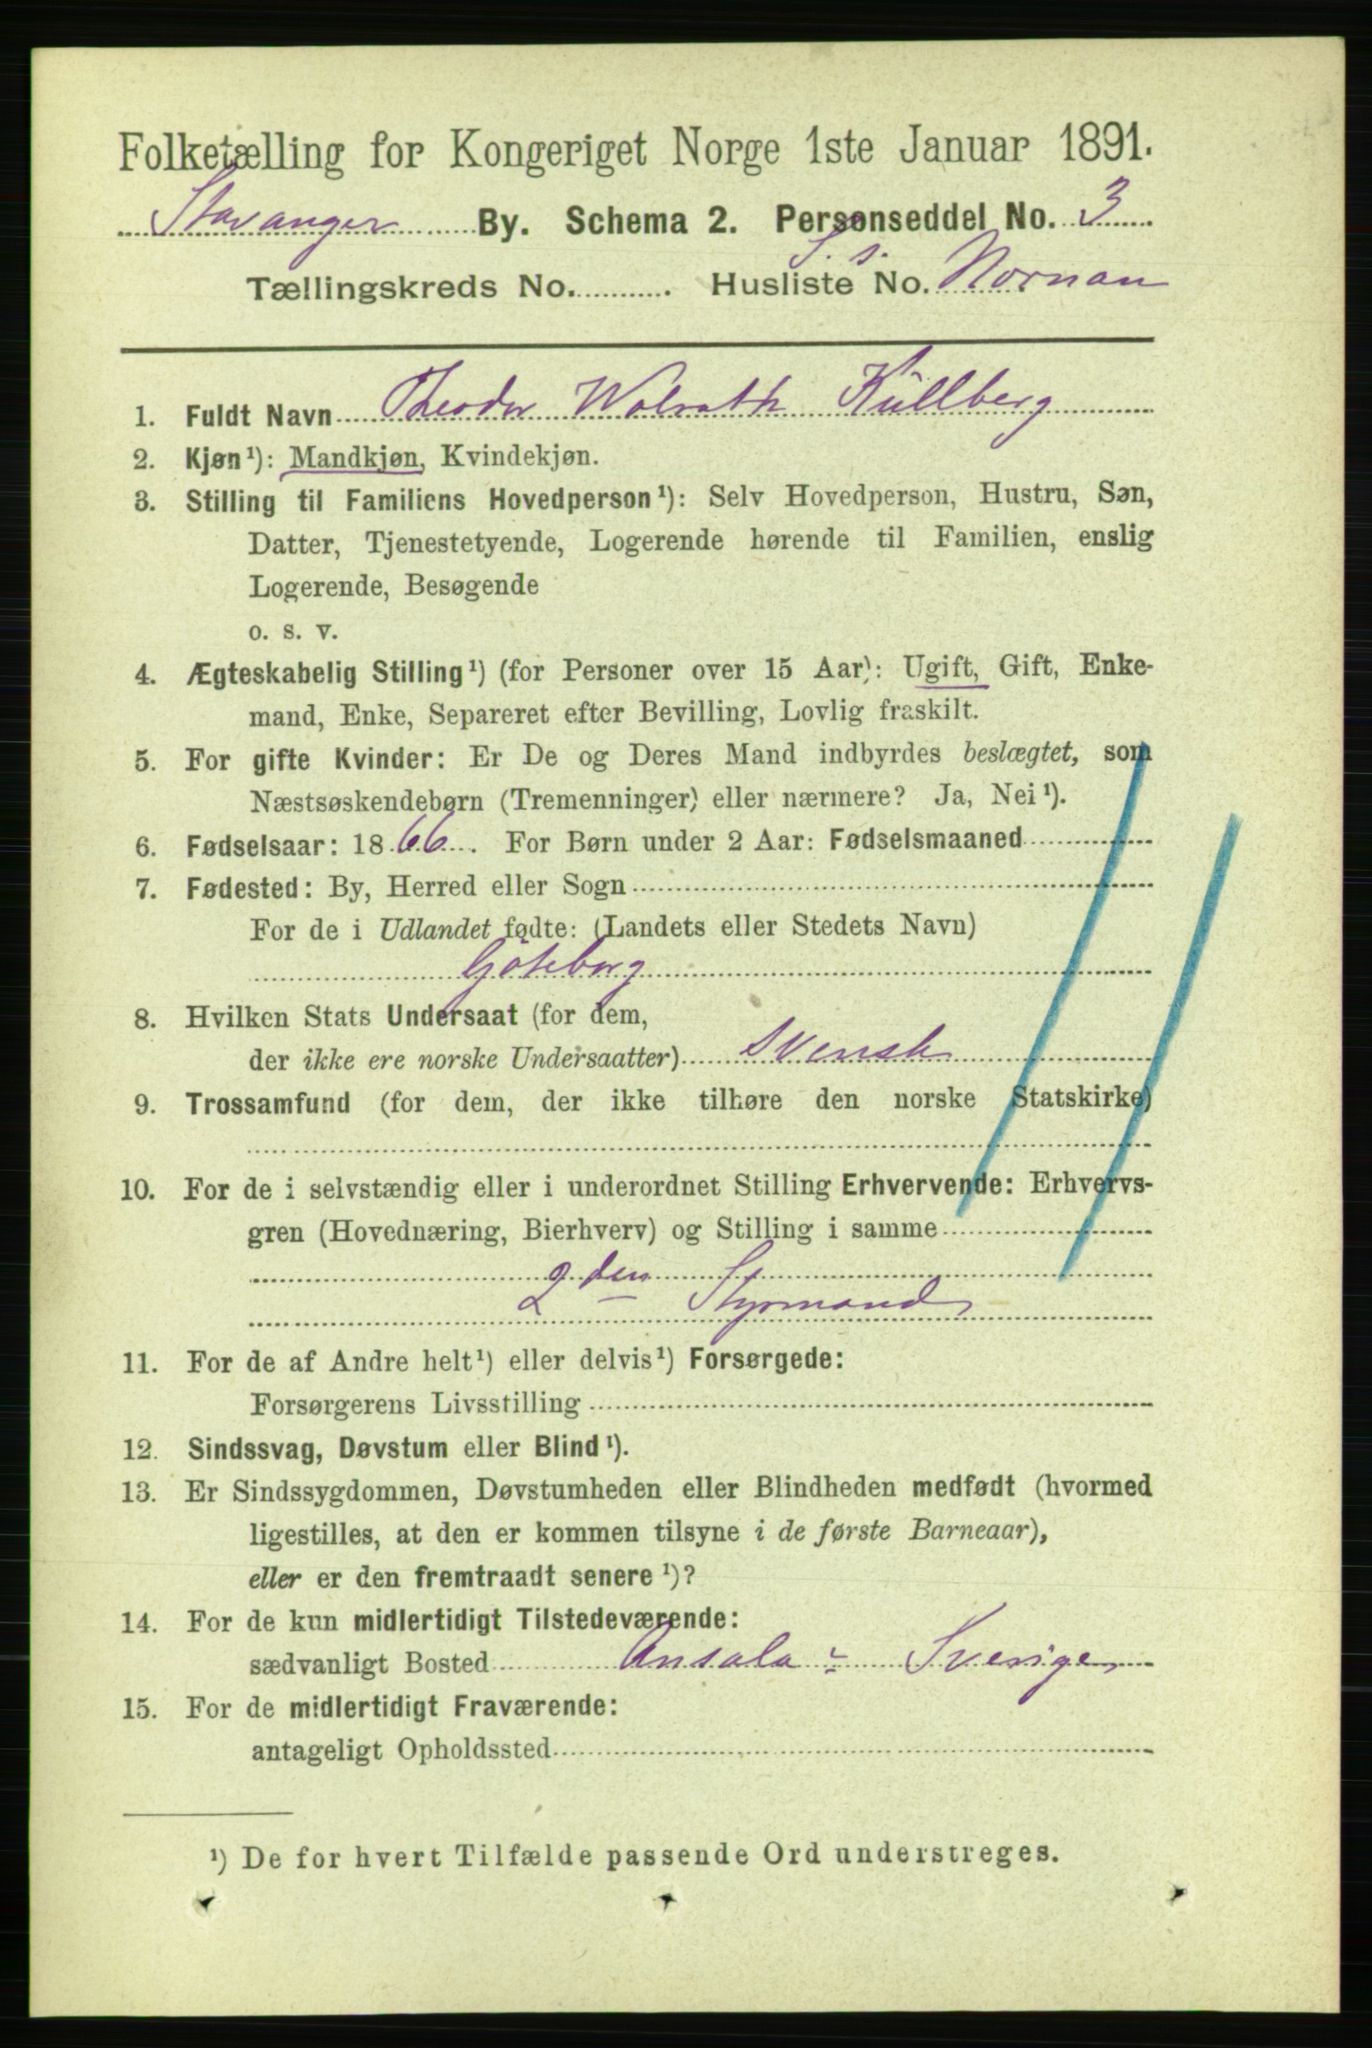 Folketælling for Kongeriget Norge 1ste Januar 1891.
Stavanger By. Schema 2. Personseddel No. 3
S. s.
Tællingskreds No. . Husliste No. Nornan
1. Fuldt Navn Theodor Walrath Küllberg
2. Kjøn¹): Mandkjøn, Kvindekjøn.
3. Stilling til Familiens Hovedperson¹): Selv Hovedperson, Hustru, Søn,
Datter, Tjenestetyende, Logerende hørende til Familien, enslig
Logerende, Besøgende
o. s. v.
4. Ægteskabelig Stilling¹) (for Personer over 15 Aar): Ugift, Gift, Enke-
mand, Enke, Separeret efter Bevilling, Lovlig fraskilt.
5. For gifte Kvinder: Er De og Deres Mand indbyrdes beslægtet, som
Næstsøskendebørn (Tremenninger) eller nærmere? Ja, Nei¹).
6. Fødselsaar: 1866. For Børn under 2 Aar: Fødselsmaaned
7. Fødested: By, Herred eller Sogn
For de i Udlandet fødte: (Landets eller Stedets Navn)
Göteborg
8. Hvilken Stats Undersaat (for dem,
der ikke ere norske Undersaatter) Svensk
9. Trossamfund (for dem, der ikke tilhøre den norske Statskirke)
10. For de i selvstændig eller i underordnet Stilling Erhvervende: Erhvervs-
gren (Hovednæring, Bierhverv) og Stilling i samme
2den Styrmand
11. For de af Andre helt¹) eller delvis¹) Forsørgede:
Forsørgerens Livsstilling
12. Sindssvag, Døvstum eller Blind¹).
13. Er Sindssygdommen, Døvstumheden eller Blindheden medfødt (hvormed
ligestilles, at den er kommen tilsyne i de første Barneaar),
eller er den fremtraadt senere¹)?
14. For de kun midlertidigt Tilstedeværende:
sædvanligt Bosted Onsala - Sverige
15. For de midlertidigt Fraværende:
antageligt Opholdssted
¹) De for hvert Tilfælde passende Ord understreges.